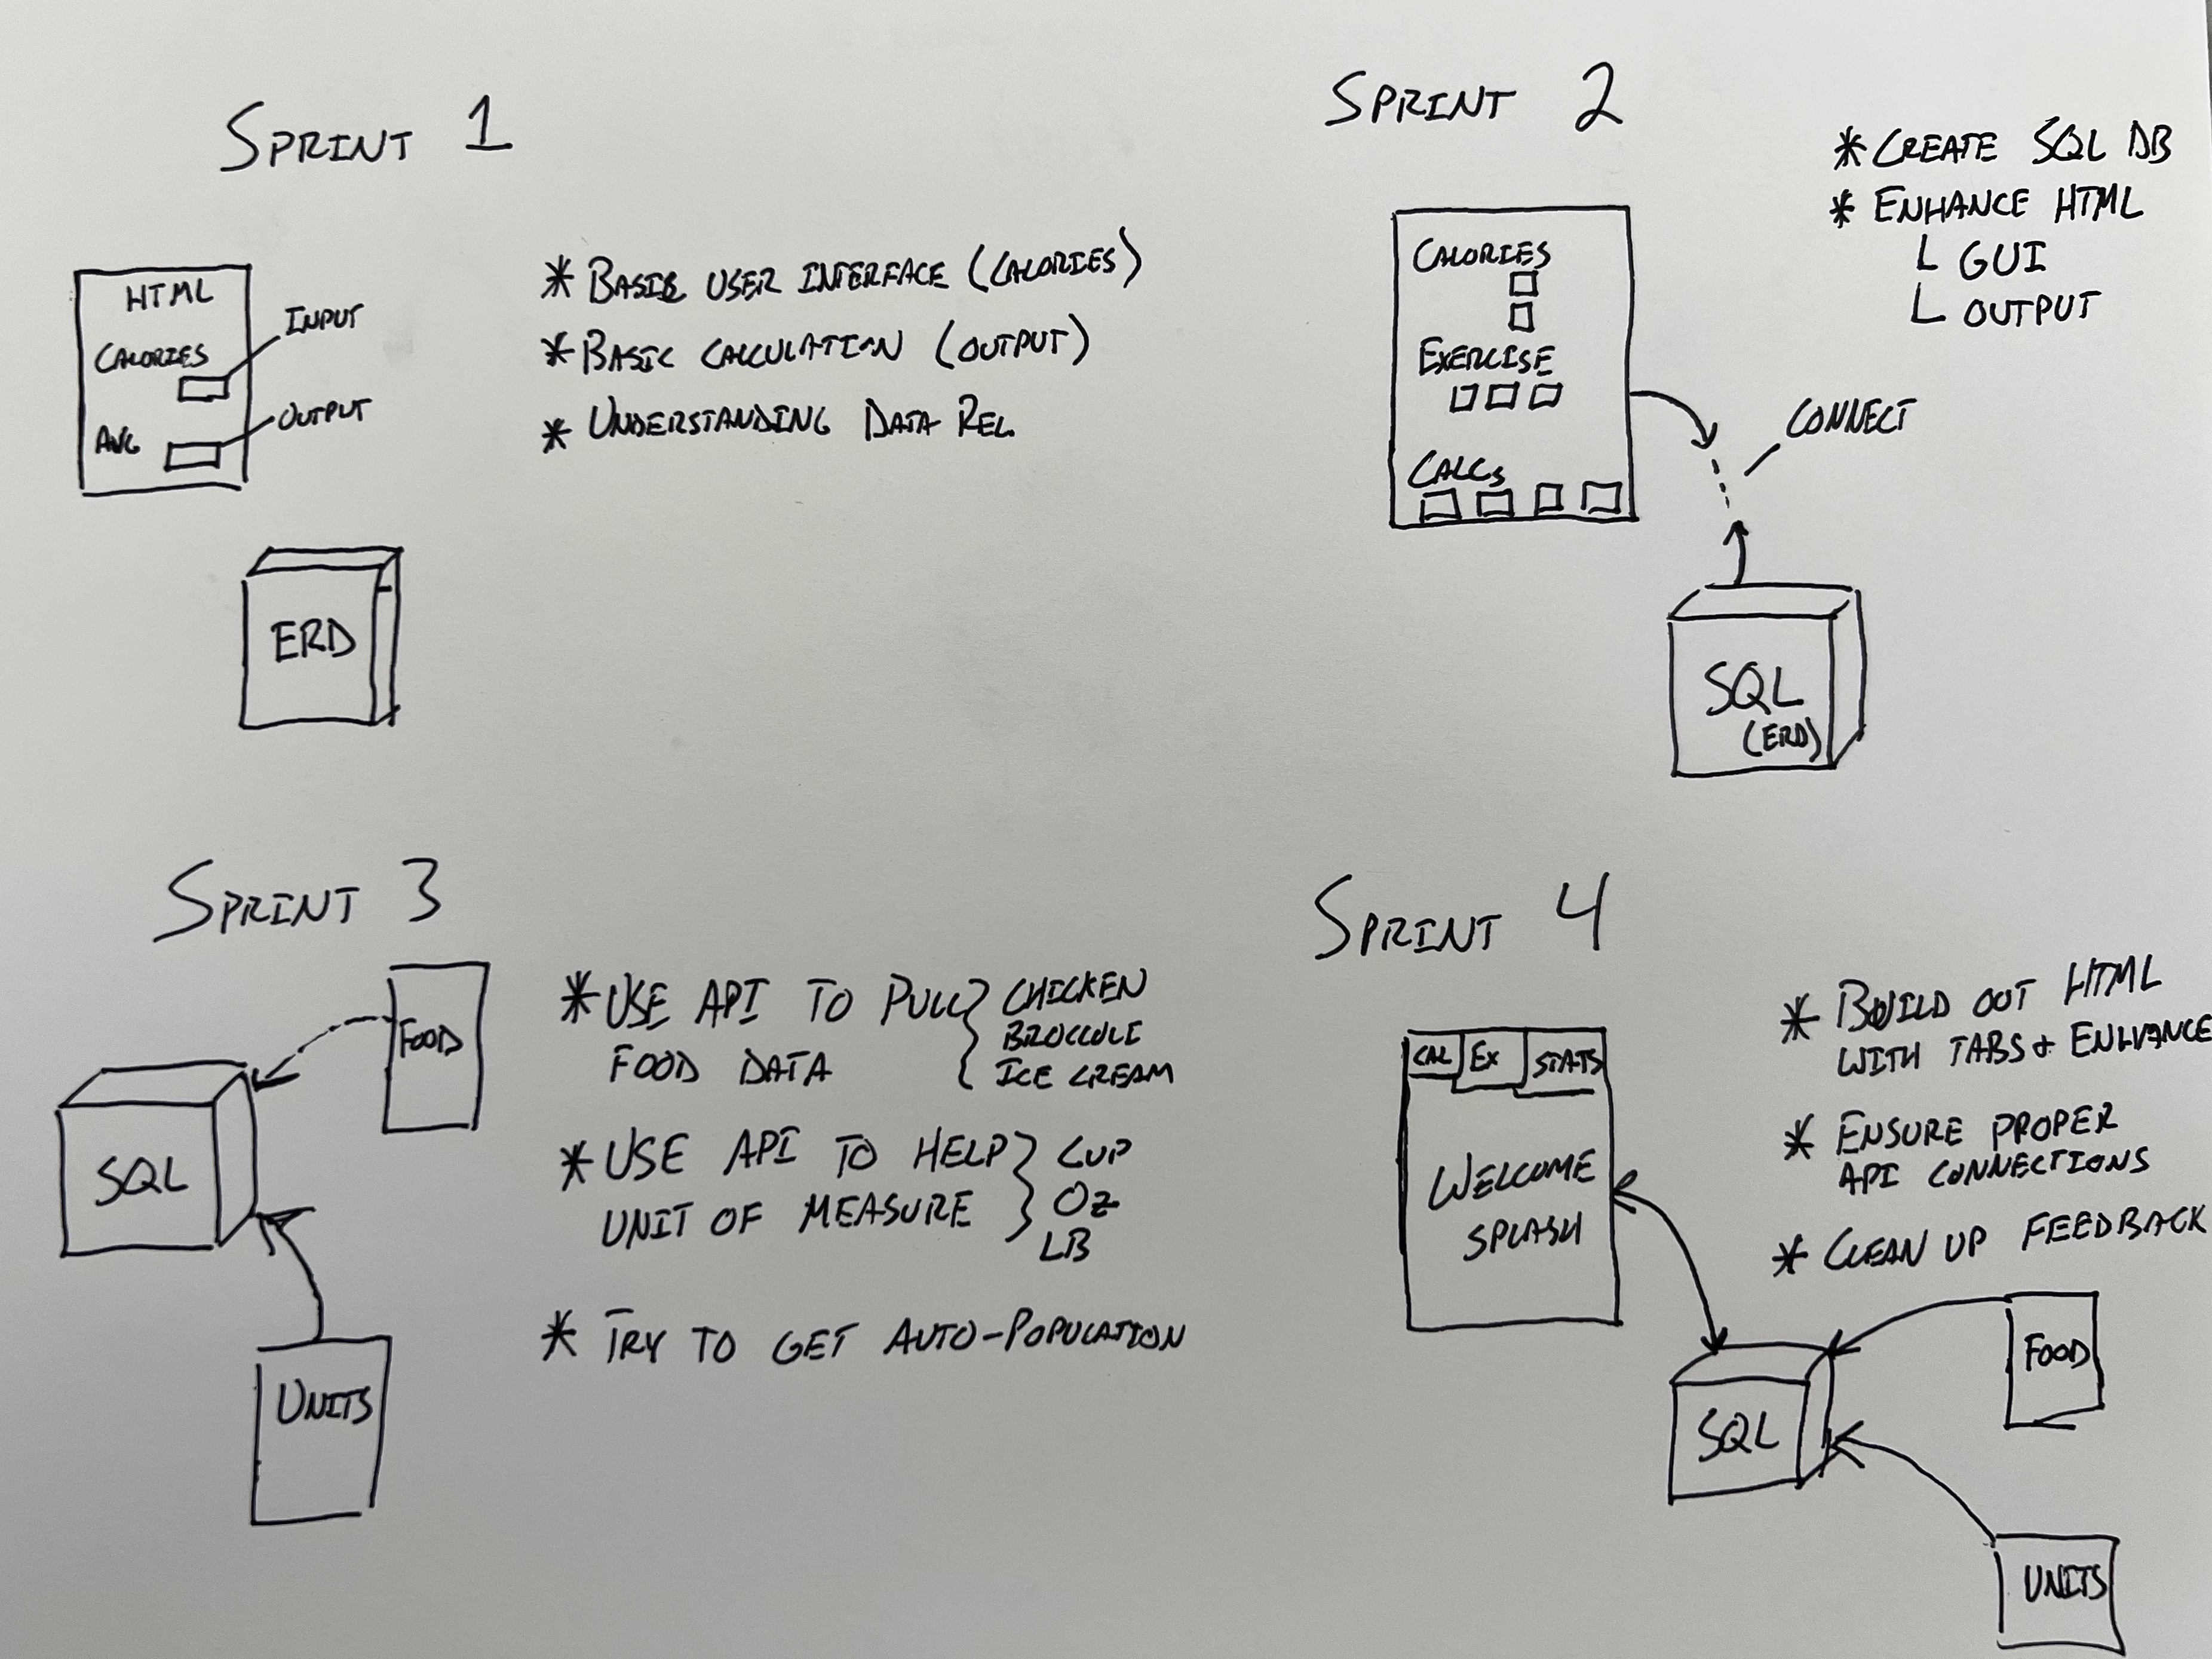 SPRINT 1
HTML
CALORIES
INPUT
AVG
OUTPUT
* BASIC USER INTERFACE (CALORIES)
* BASIC CALCULATION (OUTPUT)
* UNDERSTANDING DATA REL.
ERD
SPRINT 2
* CREATE SQL DB
* ENHANCE HTML
L GUI
L OUTPUT
CALORIES
EXERCISE
CALCS
CONNECT
SQL
(ERD)
SPRINT 3
FOOD
SQL
UNITS
* USE API TO PULL } CHICKEN
BROCCOLI
FOOD DATA { ICE CREAM
* USE API TO HELP } CUP
UNIT OF MEASURE } OZ
LB
* TRY TO GET AUTO-POPULATION
SPRINT 4
CAL EX STATS
WELCOME
SPLASH
* BUILD OUT HTML
WITH TABS &
* ENSURE PROPER
API CONNECTIONS
* CLEAN UP FEEDBACK
SQL
FOOD
UNITS